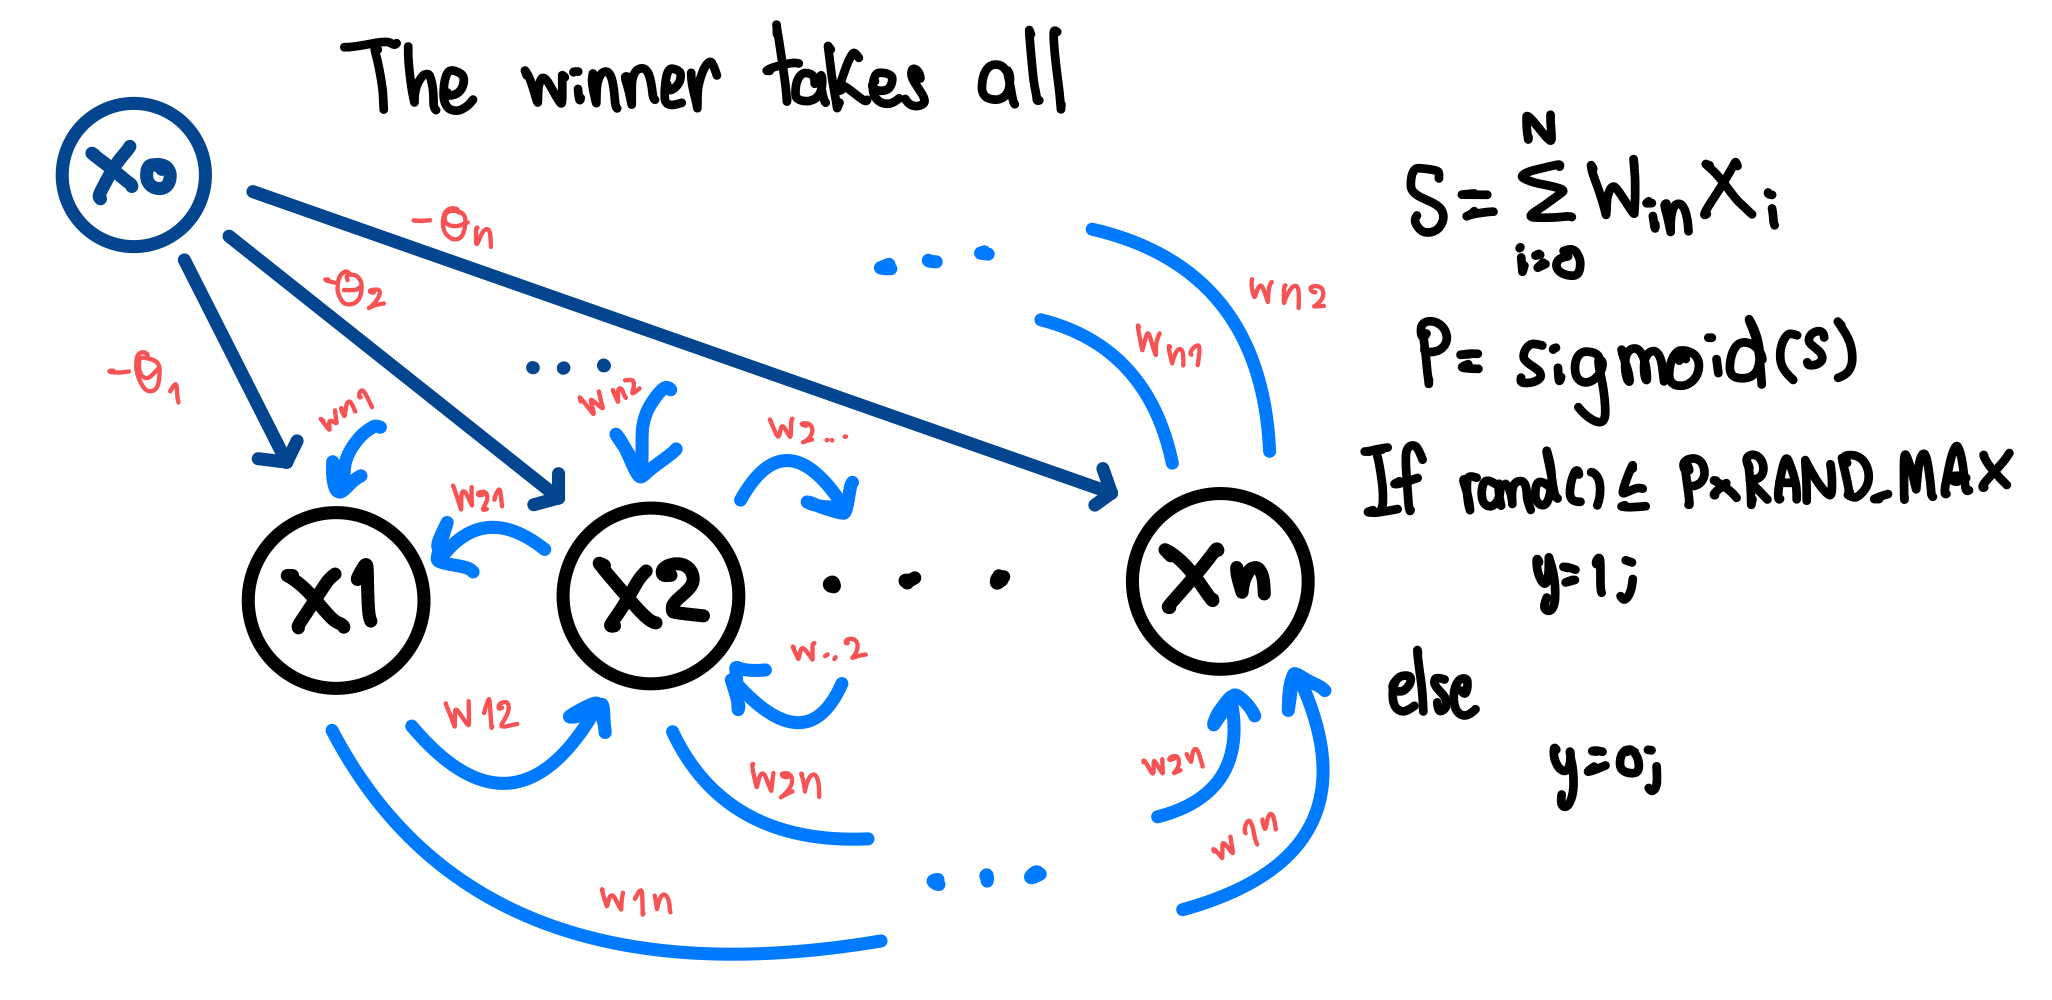 The winner takes all
X0
-θn
-θ2
-θ1
wn1
wn2
w2...
w21
wn1
wn2
X1
X2
Xn
w12
w..2
w2n
w2n
w1n
w1n
S = N Σ i=0 Win Xi
P = sigmoid(S)
If rand() ≤ P*RAND_MAX
y=1;
else
y=0;